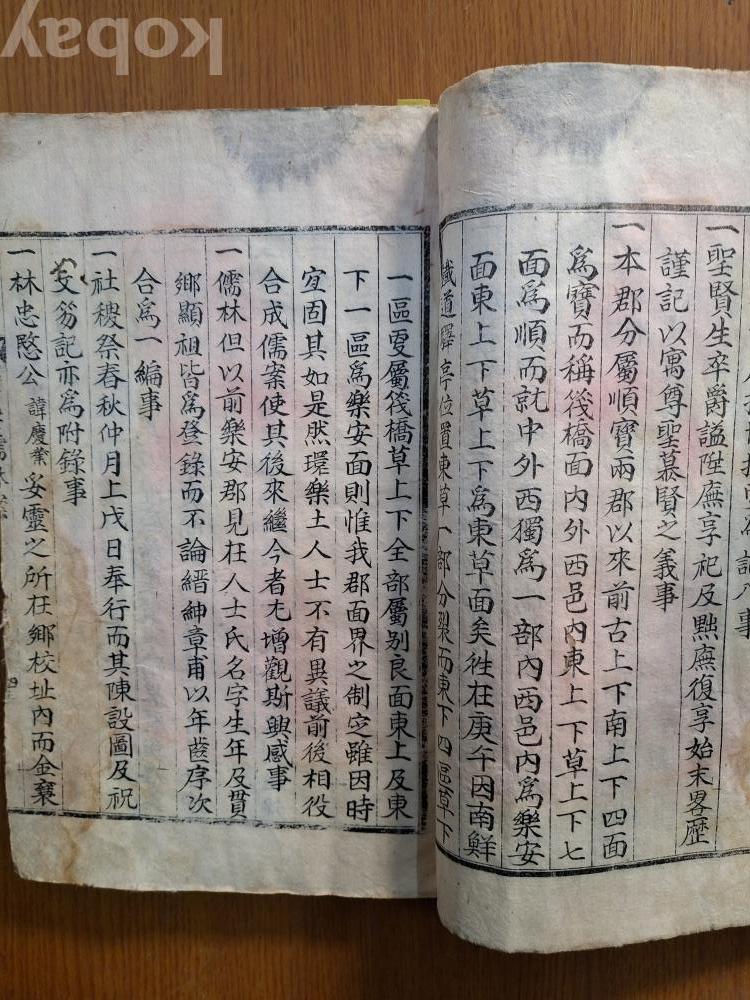 kobay
一聖賢生卒爵謚陞廡享祀及黜廡復享始末畧歷
謹記以寓尊聖慕賢之義事
一本郡分屬順寶兩郡以來前古上下南上下四面
爲寶而稱筏橋面內外西邑內東上下草上下七
面爲順而就中外西獨爲一部內西邑內爲樂安
面東上下草上下爲東草面矣徃在庚午因南鮮
鐵道驛亭位置東草一部分裂而東下四區草下
一區更屬筏橋草上下全部屬別良面東上及東
下一區爲樂安面則惟我郡面界之制定雖因時
宜固其如是然環樂土人士不有異議前後相役
合成儒案使其後來繼今者尤增觀斯興感事
一儒林但以前樂安郡見在人士氏名字生年及貫
鄉顯祖皆爲登錄而不論縉紳章甫以年齒序次
合爲一編事
一社稷祭春秋仲月上戊日奉行而其陳設圖及祝
文笏記亦爲附錄事
一林忠愍公 諱慶業 妥靈之所在鄉校址內而金棄